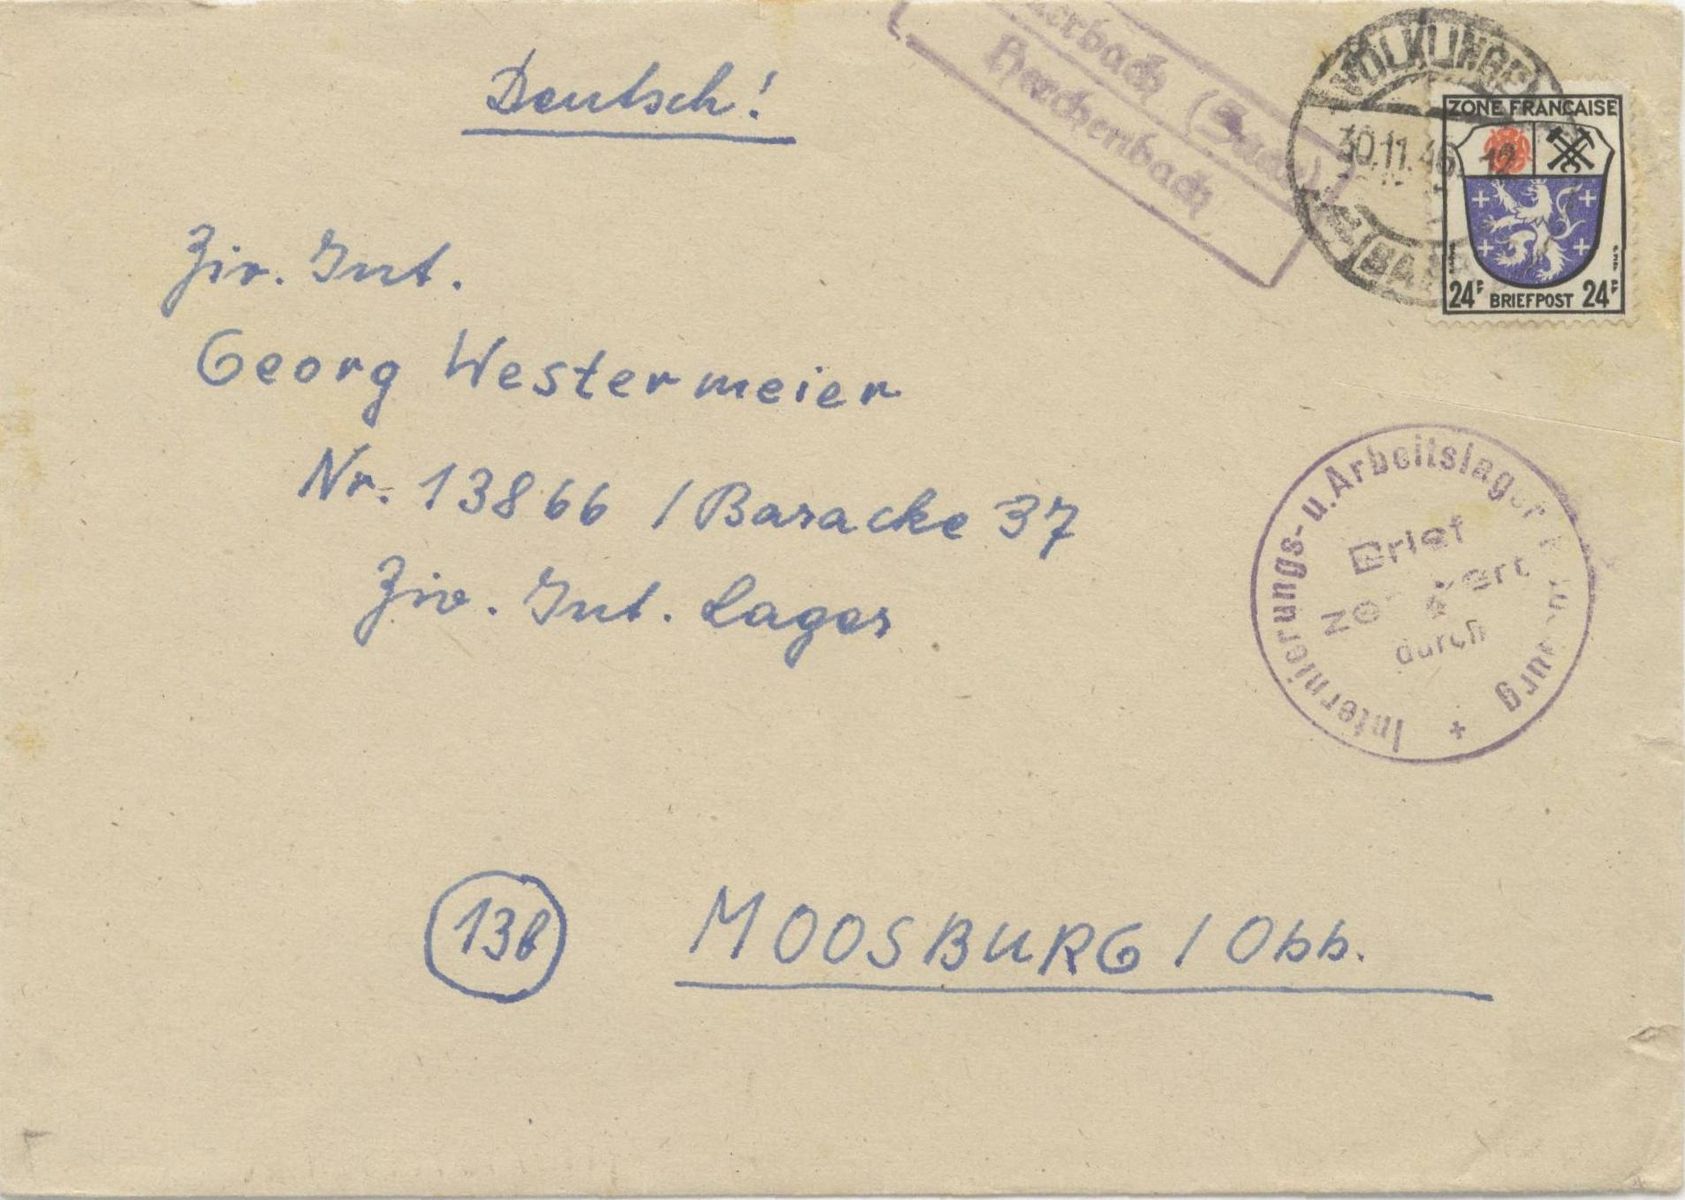 Deutsch!
(Saar)
Herchenbach
VÖLKLINGEN
30.11.46. 12
ZONE FRANÇAISE
24F BRIEFPOST 24F
Ziv. Int.
Georg Westermeier
Nr. 13866 / Baracke 37
Ziv. Int. Lager
Internierungs- u. Arbeitslager
Brief
durch
13b MOOSBURG / Obb.